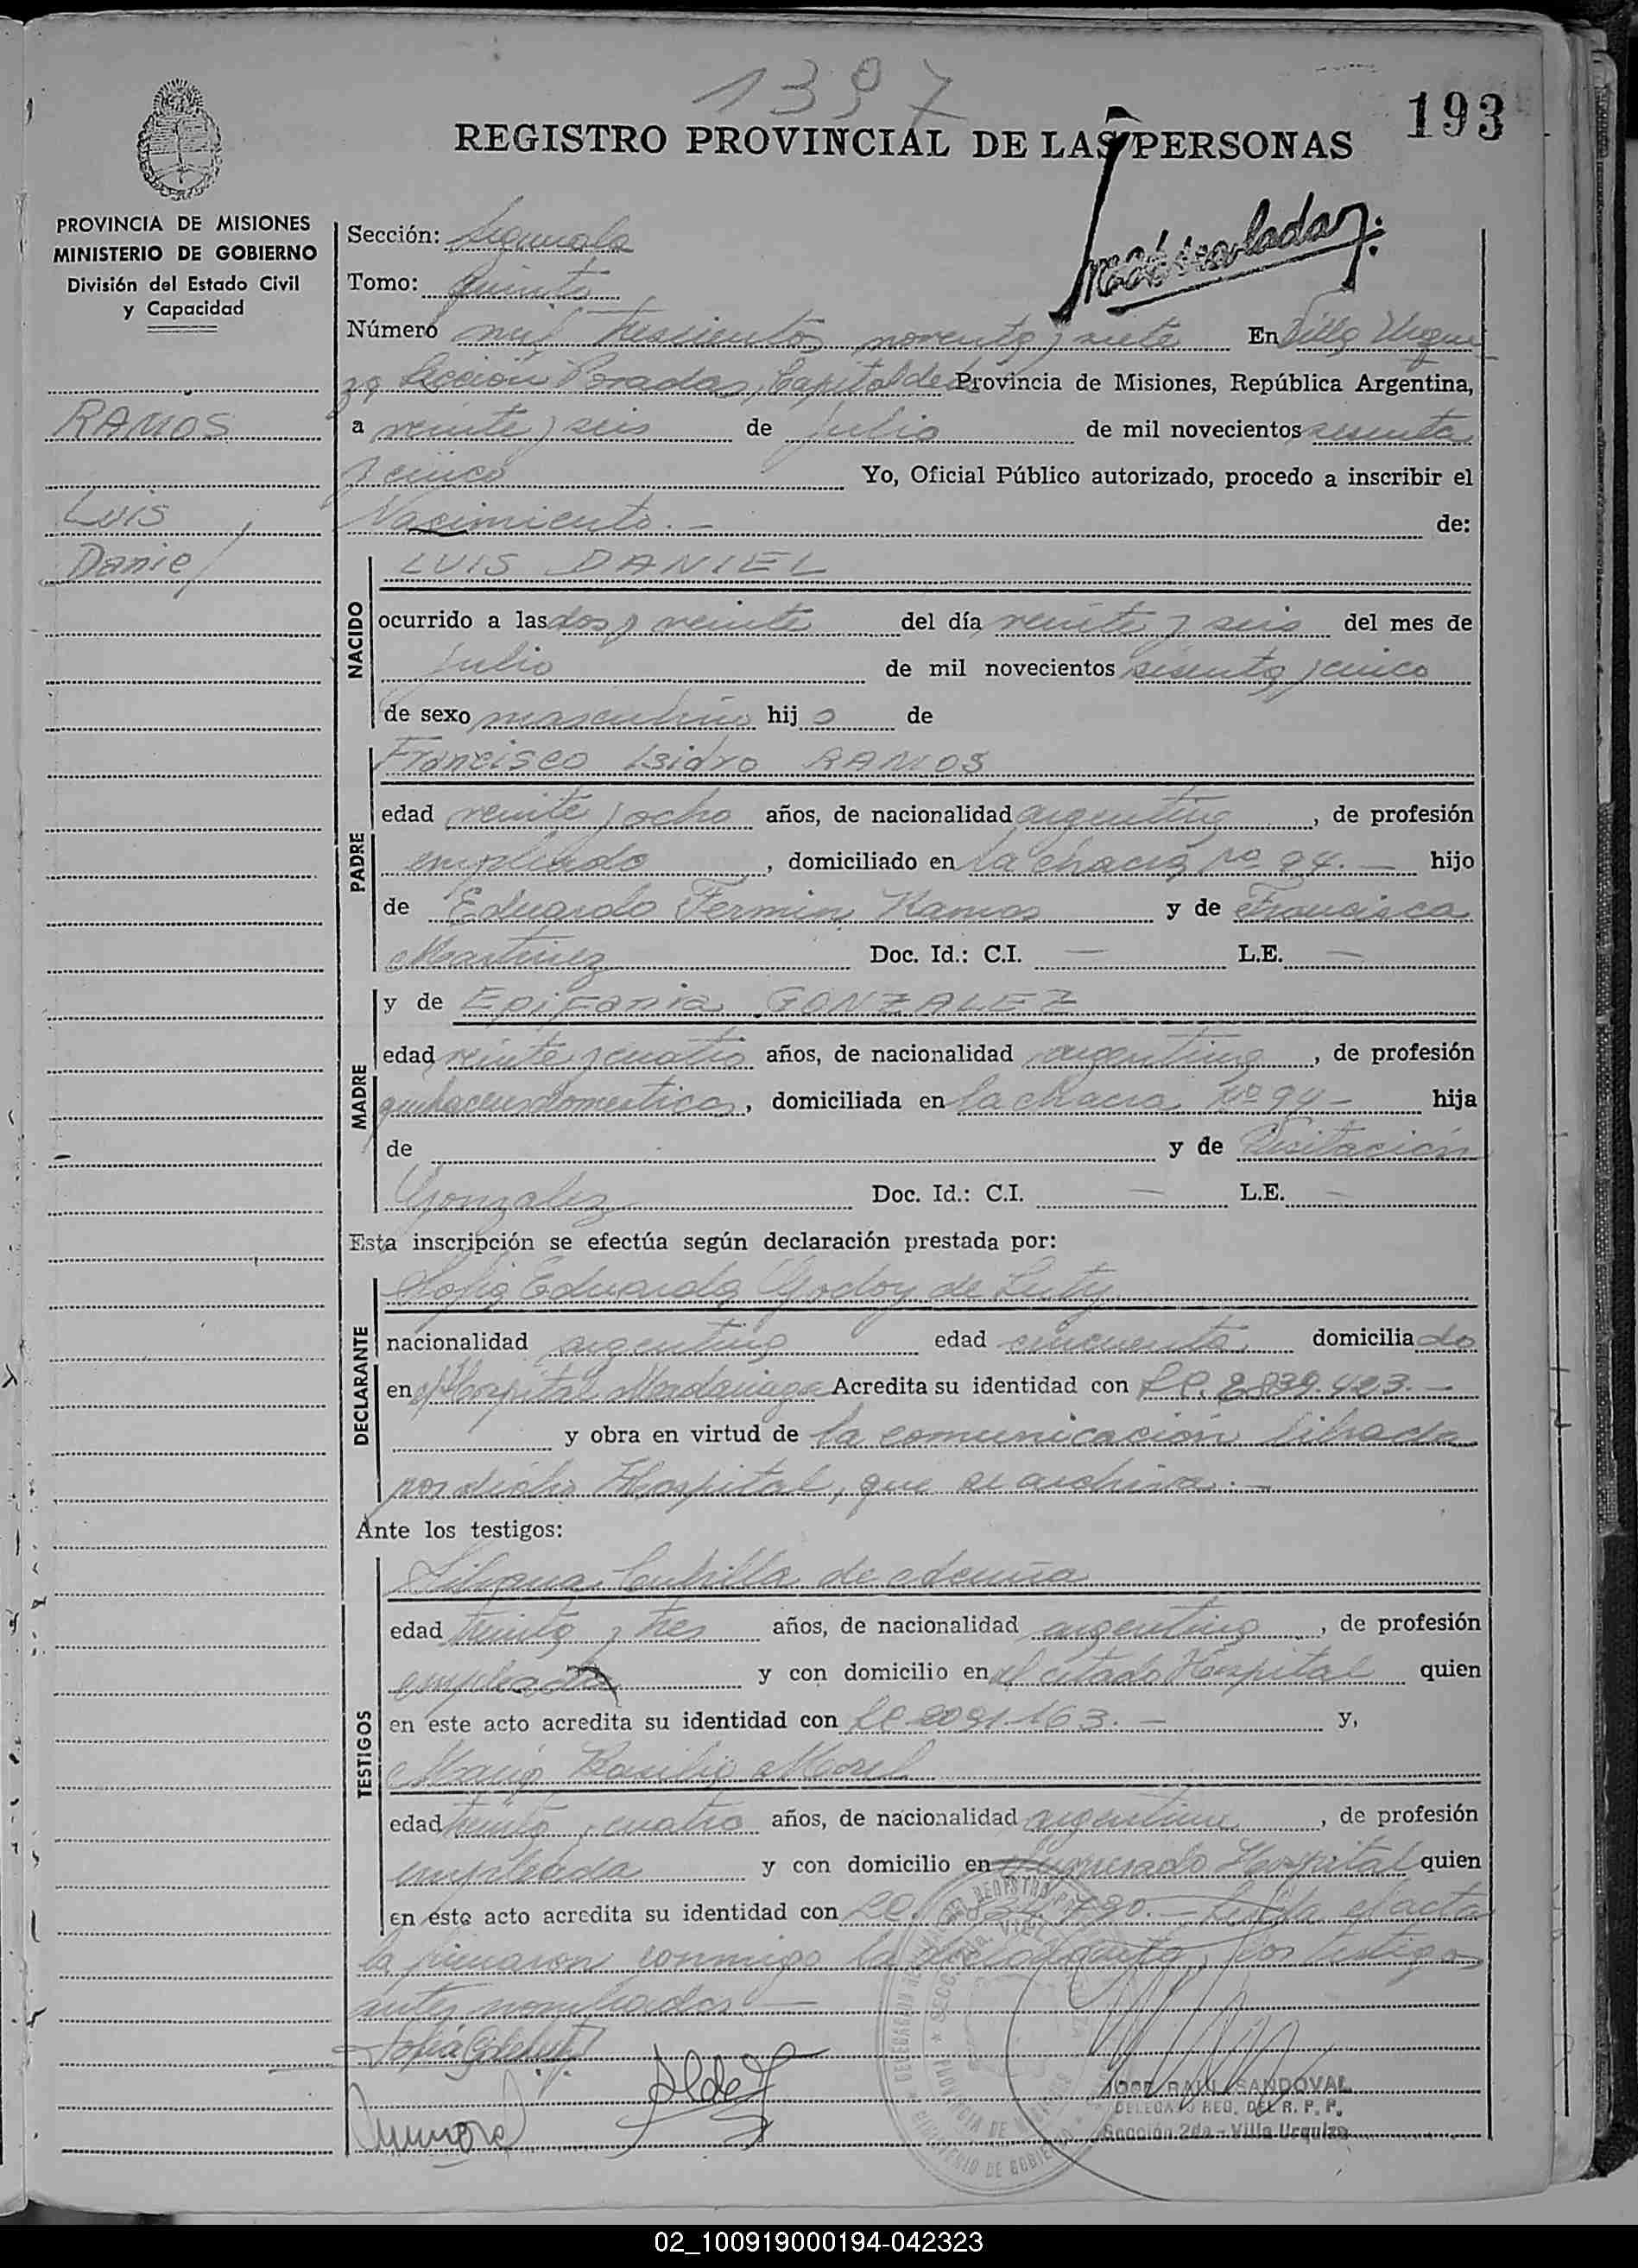 1397
193
REGISTRO PROVINCIAL DE LAS PERSONAS
PROVINCIA DE MISIONES
MINISTERIO DE GOBIERNO
División del Estado Civil
y Capacidad
RAMOS
Luis
Daniel
Sección: Segunda
Tomo: Quinto
Número mil trescientos noventa y siete En Villa Urqui
za Sección Posadas, Capital de la Provincia de Misiones, República Argentina,
a veinte y seis de julio de mil novecientos sesenta
y cinco Yo, Oficial Público autorizado, procedo a inscribir el
Nacimiento.- de:
NACIDO
LUIS DANIEL
ocurrido a las dos y veinte del día veinte y seis del mes de
julio de mil novecientos sesenta y cinco
de sexo masculino hijo de
PADRE
Francisco Isidro RAMOS
edad veinte y ocho años, de nacionalidad argentina, de profesión
empleado, domiciliado en la chacra No 94.- hijo
de Eduardo Fermin Ramos y de Francisca
Martinez Doc. Id.: C.I. — L.E. —
MADRE
y de Epifania GONZALEZ
edad veinte y cuatro años, de nacionalidad argentina, de profesión
quehaceres domesticos, domiciliada en la chacra No 94- hija
de y de Visitación
Gonzalez Doc. Id.: C.I. — L.E. —
Esta inscripción se efectúa según declaración prestada por:
DECLARANTE
Sofia Eduarda Godoy de
nacionalidad argentina edad cincuenta domiciliado
en el Hospital Madariaga Acredita su identidad con 2.839.423.-
y obra en virtud de la comunicación librada
por dicho Hospital, que se archiva.-
Ante los testigos:
TESTIGOS
de Acuña
edad treinta y tres años, de nacionalidad argentina, de profesión
empleada y con domicilio en el citado Hospital quien
en este acto acredita su identidad con y,
Maria Basilia Morel
edad treinta y cuatro años, de nacionalidad argentina, de profesión
empleada y con domicilio en el Hospital quien
en este acto acredita su identidad con Leida el acta
la firmaron conmigo la declarante y los testigos
antes nombrados.-
JOSE RAUL SANDOVAL
DELEGADO REG. DEL R. P. P.
Sección 2da - Villa Urquiza
02_100919000194-042323